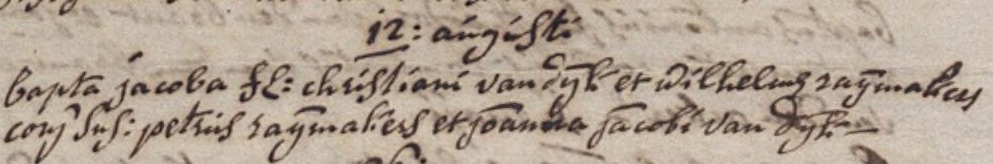 12: augusti
bapta jacoba fl: christiani van dyk et wilhelmæ raÿmakers
conj Sus: petrus raÿmakers et joanna jacobi van dyk